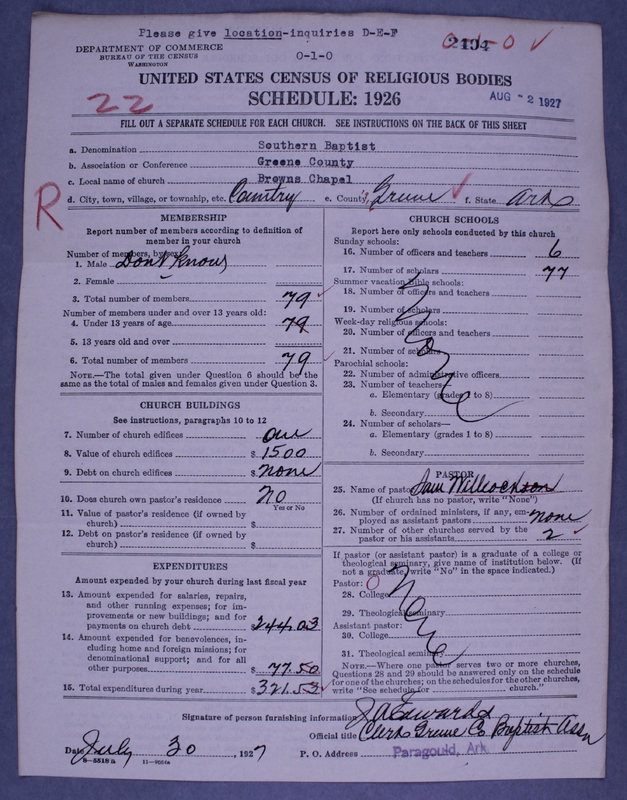 Please give location-inquiries D-E-F
DEPARTMENT OF COMMERCE
BUREAU OF THE CENSUS
WASHINGTON
0-1-0
2104
UNITED STATES CENSUS OF RELIGIOUS BODIES
22
SCHEDULE: 1926
AUG - 2 1927
FILL OUT A SEPARATE SCHEDULE FOR EACH CHURCH. SEE INSTRUCTIONS ON THE BACK OF THIS SHEET
a. Denomination Southern Baptist
b. Association or Conference Greene County
c. Local name of church Browns Chapel
R
d. City, town, village, or township, etc. Country e. County Greene f. State Ark
MEMBERSHIP
Report number of members according to definition of
member in your church
Number of members, by sex:
1. Male Don't Know
2. Female
3. Total number of members 79
Number of members under and over 13 years old:
4. Under 13 years of age 79
5. 13 years old and over
6. Total number of members 79
NOTE.—The total given under Question 6 should be the
same as the total of males and females given under Question 3.
CHURCH BUILDINGS
See instructions, paragraphs 10 to 12
7. Number of church edifices one
8. Value of church edifices $ 1500
9. Debt on church edifices $ none
10. Does church own pastor's residence no
Yes or No
11. Value of pastor's residence (if owned by
church) $
12. Debt on pastor's residence (if owned by
church) $
EXPENDITURES
Amount expended by your church during last fiscal year
13. Amount expended for salaries, repairs,
and other running expenses; for im-
provements or new buildings; and for
payments on church debt $ 244.03
14. Amount expended for benevolences, in-
cluding home and foreign missions; for
denominational support; and for all
other purposes $ 77.50
15. Total expenditures during year $ 321.53
CHURCH SCHOOLS
Report here only schools conducted by this church
Sunday schools:
16. Number of officers and teachers 6
17. Number of scholars 77
Summer vacation Bible schools:
18. Number of officers and teachers
19. Number of scholars
Week-day religious schools:
20. Number of officers and teachers
21. Number of scholars
Parochial schools:
22. Number of administrative officers
23. Number of teachers—
a. Elementary (grades 1 to 8)
b. Secondary
24. Number of scholars—
a. Elementary (grades 1 to 8)
b. Secondary
none
PASTOR
25. Name of pastor Sam Willcockson
(If church has no pastor, write "None")
26. Number of ordained ministers, if any, em-
ployed as assistant pastors none
27. Number of other churches served by the
pastor or his assistants 2
If pastor (or assistant pastor) is a graduate of a college or
theological seminary, give name of institution below. (If
not a graduate, write "No" in the space indicated.)
Pastor: 0
28. College
29. Theological seminary
Assistant pastor:
30. College
31. Theological seminary
none
NOTE.—Where one pastor serves two or more churches,
Questions 28 and 29 should be answered only on the schedule
for one of the churches; on the schedules for the other churches,
write "See schedule for church."
Signature of person furnishing information J A Edwards
Official title Clerk Greene Co Baptist Assn
Date July 30, 1927
P. O. Address Paragould, Ark.
8-5518a 11-9064a